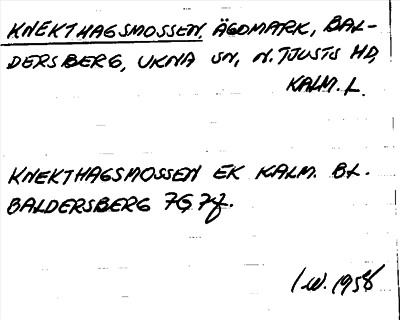 KNEKTHAGSMOSSEN, ÄGOMARK, BAL-
DERSBERG, UKNA SN, N. TJUSTS HD,
KALM. L.
KNEKTHAGSMOSSEN EK KALM. BL.
BALDERSBERG 7G 7f.
I.W. 1958